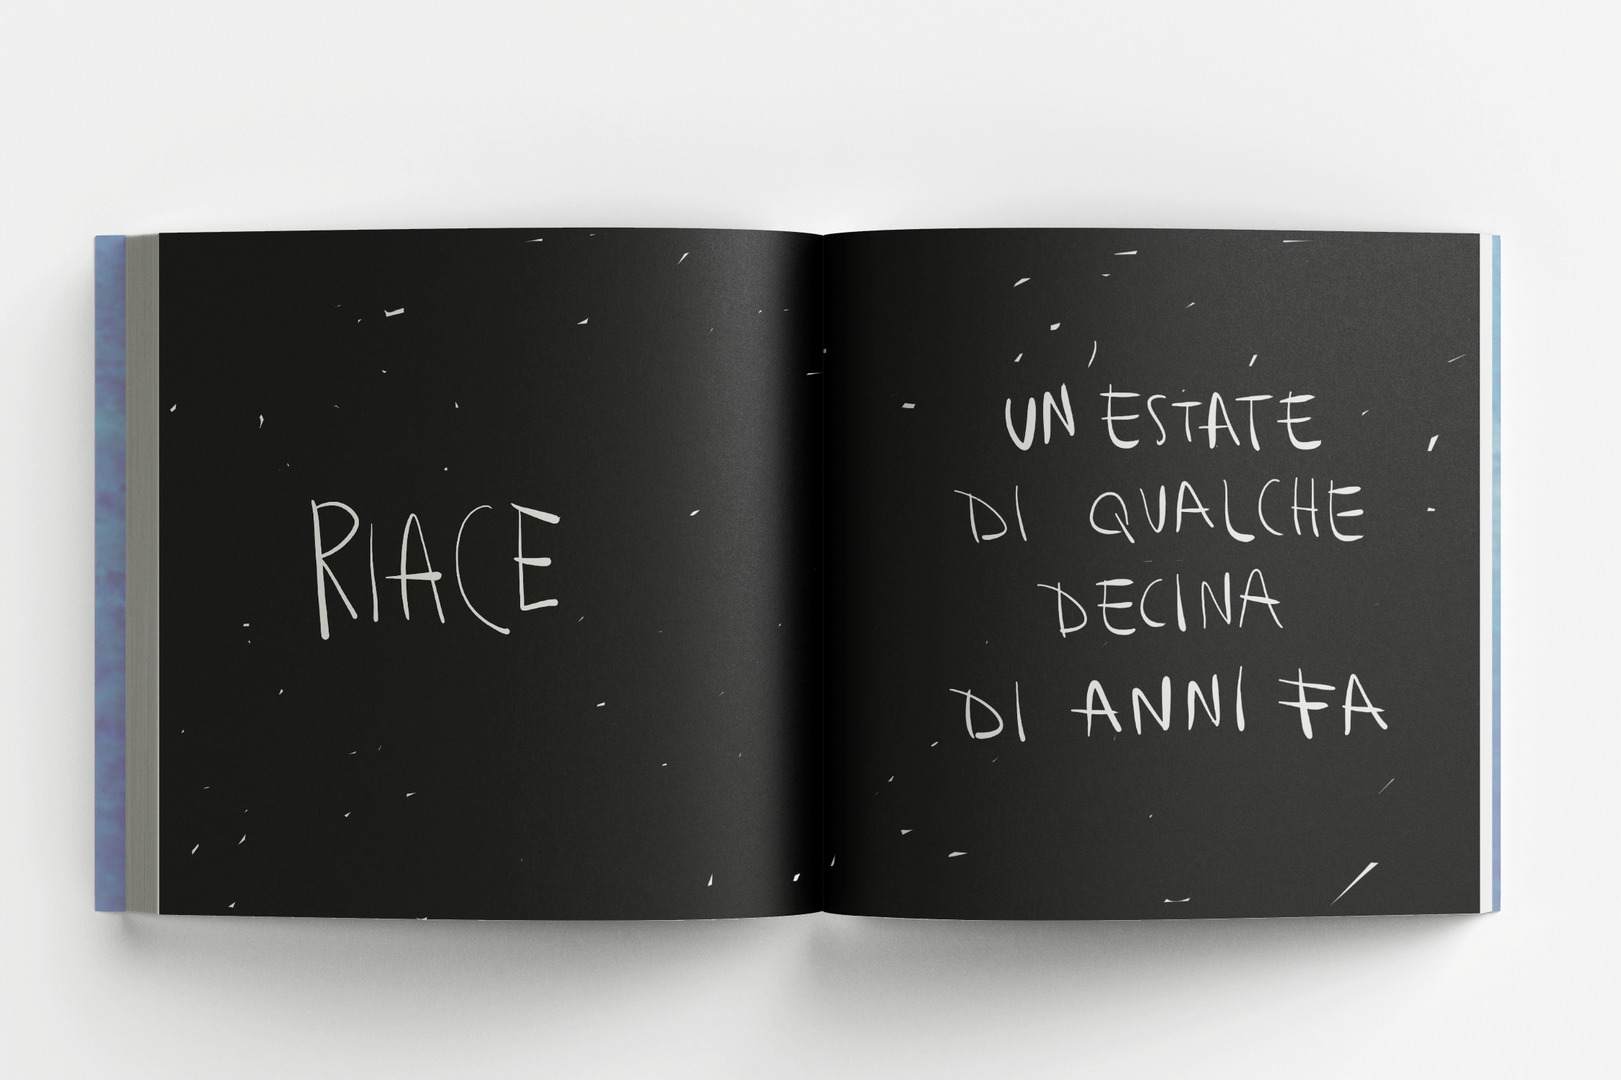 RIACE
UN ESTATE
DI QUALCHE
DECINA
DI ANNI FA